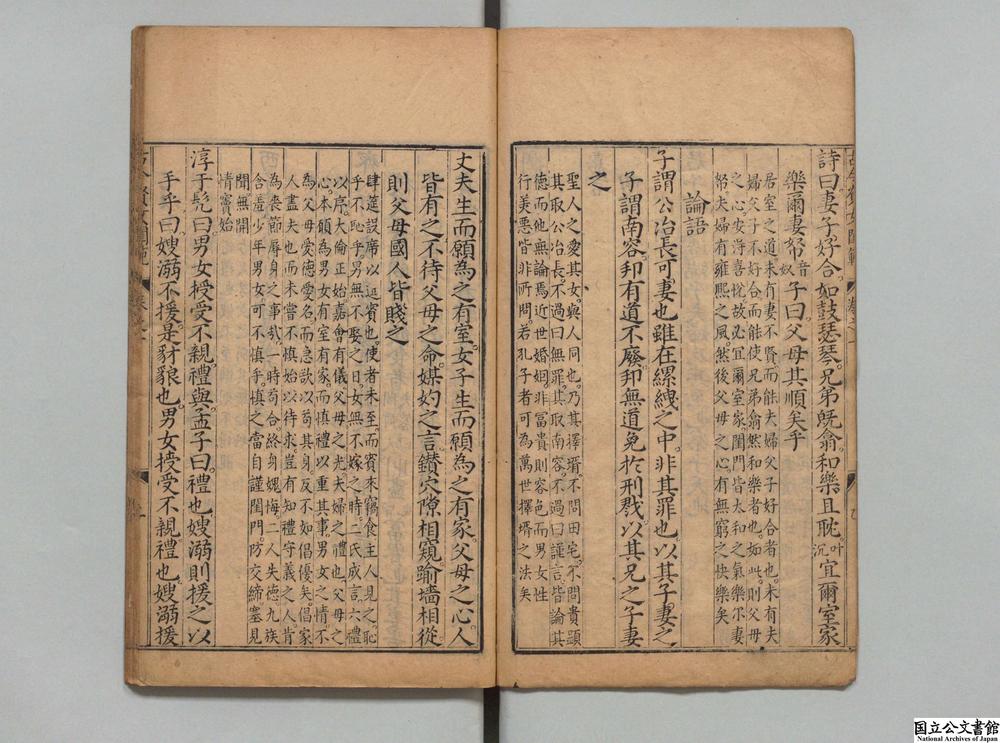 詩曰妻子好合如鼓瑟琴兄弟旣翕和樂且耽叶沉宜爾室家
樂爾妻帑音奴子曰父母其順矣乎
居室之道未有妻不賢而能夫婦父子好合者也未有夫
婦父子不好合而能使兄弟翕然和樂者也如此則父母
之心安得喜悅故必宜爾室家閨門皆太和之氣樂尓妻
帑夫婦有雍熙之風然後父母之心有無窮之快樂矣
論語
子謂公冶長可妻也雖在縲絏之中非其罪也以其子妻之
子謂南容邦有道不廢邦無道免於刑戮以其兄之子妻
之
聖人之愛其女與人同也乃其擇壻不問田宅不問貴顯
其取公冶長不過曰無罪其取南容不過曰謹言皆論其
德而他無論焉近世婚姻非富貴則容色而男女性
行美惡皆非所問若孔子者可為萬世擇壻之法矣
丈夫生而願為之有室女子生而願為之有家父母之心人
皆有之不待父母之命媒妁之言鑚穴隙相窺踰墻相從
則父母國人皆賤之
肆筵設席以延賓也使者未至而賓來竊食主人見之恥
乎不恥乎男無不娶之日女無不嫁之時二氏成言六禮
以序大倫正始嘉會有儀父母之光夫婦之禮也父母之
心本願為男女有室有家而慎禮以重其事男女之情不
為父母愛德愛名而急欲以苟其身反不如倡優矣倡家
人盡夫也而未嘗不慎始以待求豈有知禮守義之人肯
為喪節辱身之事哉一時苟合終身媿悔二人失德九族
含羞少年男女可不慎乎慎之當自謹閨門防交締塞見
聞無開
情竇始
淳于髡曰男女授受不親禮與孟子曰禮也嫂溺則援之以
手乎曰嫂溺不援是豺狼也男女授受不親禮也嫂溺援
国立公文書館
National Archives of Japan